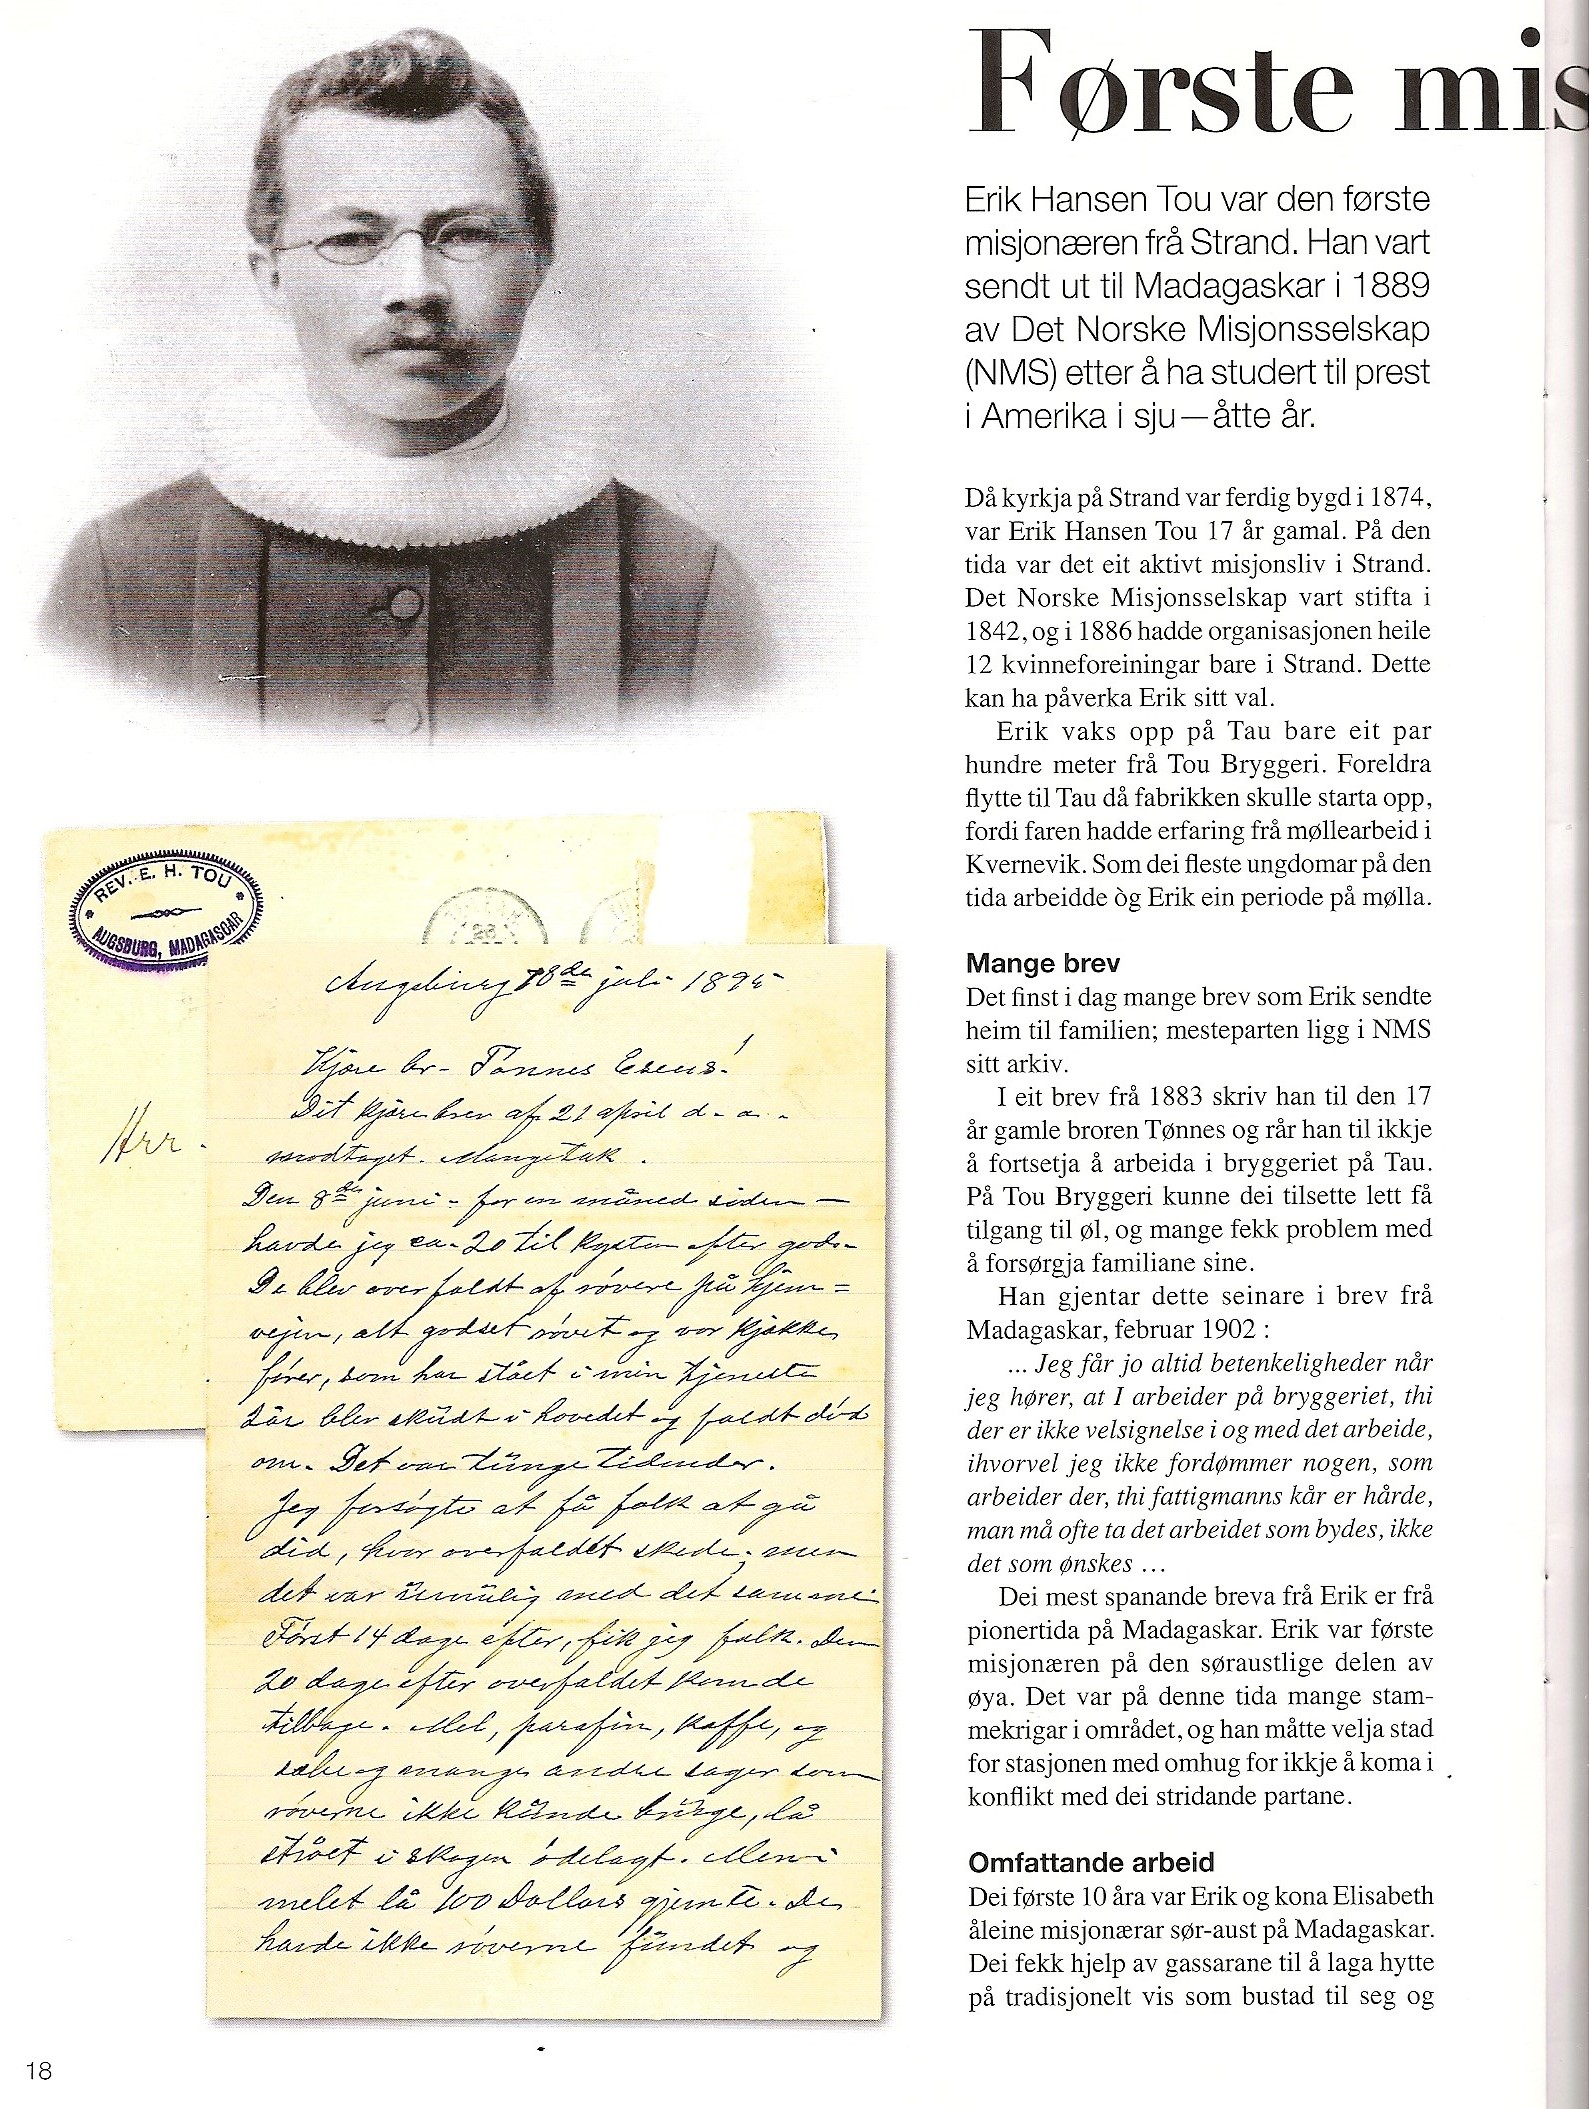 Første mis
Erik Hansen Tou var den første
misjonæren frå Strand. Han vart
sendt ut til Madagaskar i 1889
av Det Norske Misjonsselskap
(NMS) etter å ha studert til prest
i Amerika i sju—åtte år.
Då kyrkja på Strand var ferdig bygd i 1874,
var Erik Hansen Tou 17 år gamal. På den
tida var det eit aktivt misjonsliv i Strand.
Det Norske Misjonsselskap vart stifta i
1842, og i 1886 hadde organisasjonen heile
12 kvinneforeiningar bare i Strand. Dette
kan ha påverka Erik sitt val.
Erik vaks opp på Tau bare eit par
hundre meter frå Tou Bryggeri. Foreldra
flytte til Tau då fabrikken skulle starta opp,
fordi faren hadde erfaring frå møllearbeid i
Kvernevik. Som dei fleste ungdomar på den
tida arbeidde òg Erik ein periode på mølla.
Mange brev
Det finst i dag mange brev som Erik sendte
heim til familien; mesteparten ligg i NMS
sitt arkiv.
I eit brev frå 1883 skriv han til den 17
år gamle broren Tønnes og rår han til ikkje
å fortsetja å arbeida i bryggeriet på Tau.
På Tou Bryggeri kunne dei tilsette lett få
tilgang til øl, og mange fekk problem med
å forsørgja familiane sine.
Han gjentar dette seinare i brev frå
Madagaskar, februar 1902 :
... Jeg får jo altid betenkeligheder når
jeg hører, at I arbeider på bryggeriet, thi
der er ikke velsignelse i og med det arbeide,
ihvorvel jeg ikke fordømmer nogen, som
arbeider der, thi fattigmanns kår er hårde,
man må ofte ta det arbeidet som bydes, ikke
det som ønskes ...
Dei mest spanande breva frå Erik er frå
pionertida på Madagaskar. Erik var første
misjonæren på den søraustlige delen av
øya. Det var på denne tida mange stam-
mekrigar i området, og han måtte velja stad
for stasjonen med omhug for ikkje å koma i
konflikt med dei stridande partane.
Omfattande arbeid
Dei første 10 åra var Erik og kona Elisabeth
åleine misjonærar sør-aust på Madagaskar.
Dei fekk hjelp av gassarane til å laga hytte
på tradisjonelt vis som bustad til seg og
REV. E. H. TOU
AUGSBURG, MADAGASCAR
26
Hrr.
Augsburg 8de juli 1895
Kjære br. Tønnes Evens!
Dit kjære brev af 21 april d. a.
modtaget. Mange tak.
Den 8de juni - for en måned siden -
havde jeg ca. 20 til kysten efter gods.
De blev overfaldt af røvere på hjem=
vejen, alt godset røvet og vor kjøkke
fører, som har stået i min tjeneste
blev skudt i hovedet og faldt død
om. Det var tunge tidender.
Jeg forsøgte at få folk at gå
did, hvor overfaldet skede, men
det var umulig med det samme
Först 14 dage efter, fik jeg folk. Den
20 dage efter overfaldet kom de
tilbage. Mel, parafin, kaffe, og
sæbe og mange andre sager som
røverne ikke kunde bruge, lå
strøet i skogen ödelagt. Men i
melet lå 100 Dollars gjemte. De
havde ikke røverne fundet og
18